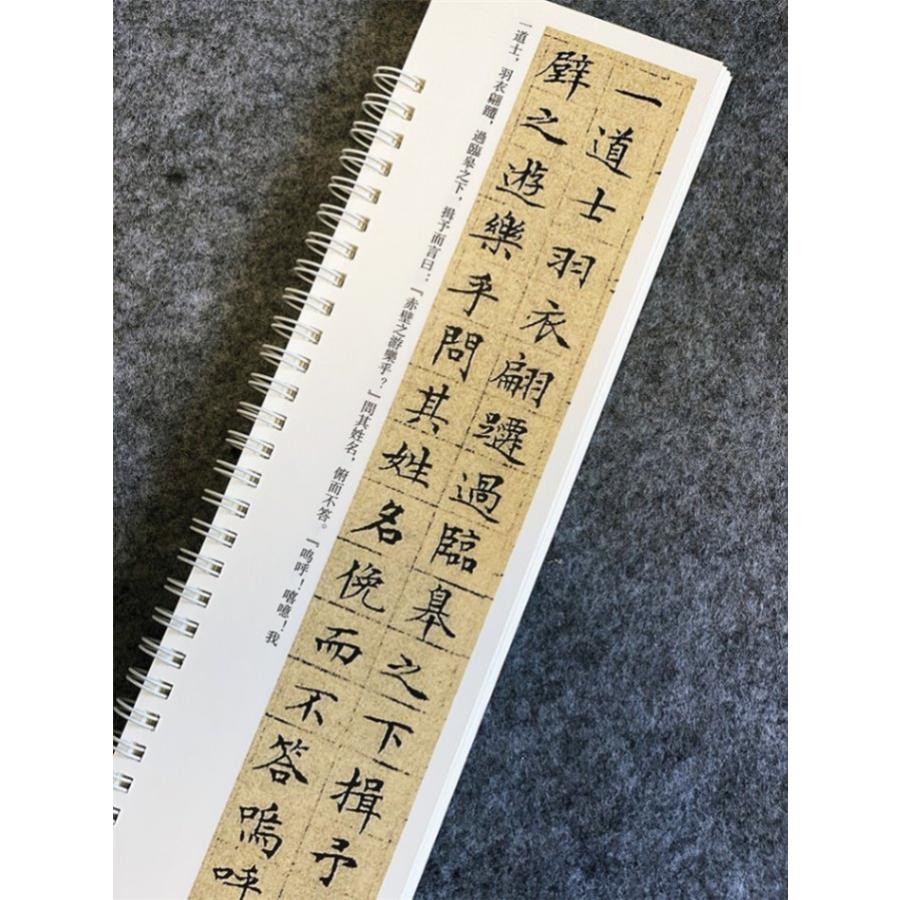 一道士羽衣翩躚過臨皋之下揖予
壁之遊樂乎問其姓名俛而不答嗚呼
一道士，羽衣翩躚，過臨皋之下，揖予而言曰：『赤壁之游樂乎？』問其姓名，俯而不答。『嗚呼！嘻噫！我